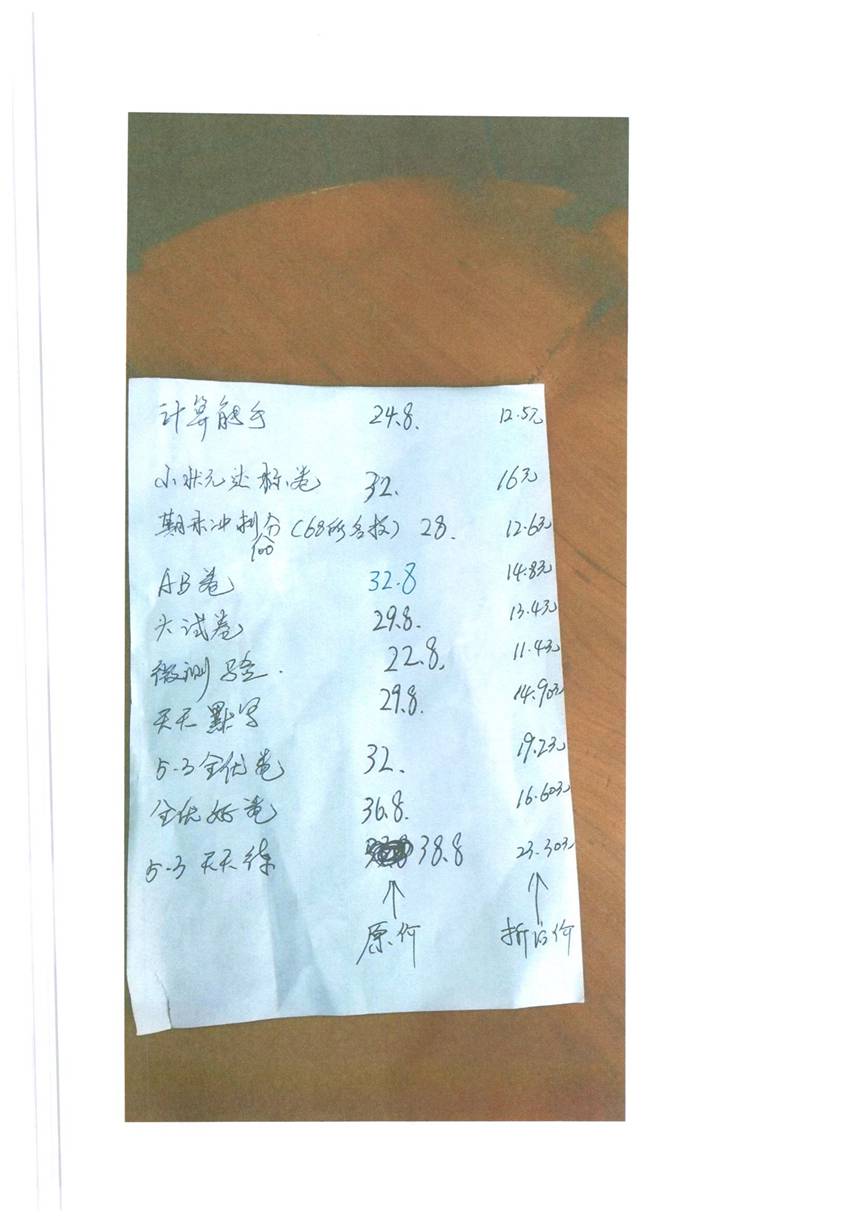 计算能手 24.8. 12.5元
小状元达标卷 32. 16元
期末冲刺100分(68所名校) 28. 12.6元
AB卷 32.8 14.8元
大试卷 29.8. 13.4元
微测验. 22.8. 11.4元
天天默写 29.8. 14.90元
5.3全优卷 32. 19.2元
全优好卷 36.8. 16.60元
5.3天天练 38.8 23.30元
原价 折后价